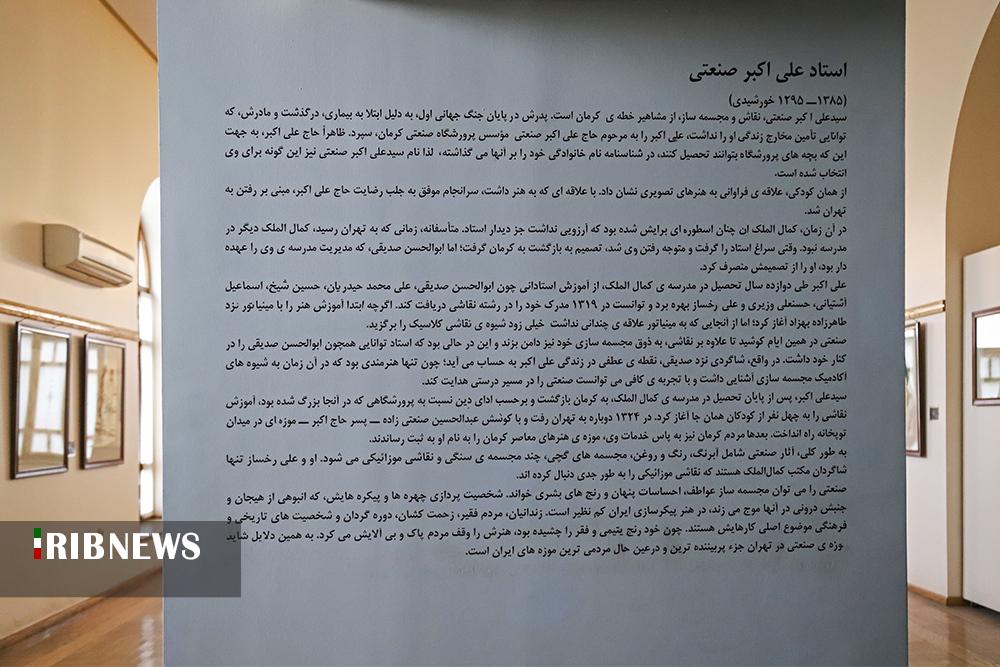 استاد علی اکبر صنعتی
(۱۳۸۵ــ ۱۲۹۵ خورشیدی)
سیدعلی اکبر صنعتی، نقاش و مجسمه ساز، از مشاهیر خطه ی کرمان است. پدرش در پایان جنگ جهانی اول، به دلیل ابتلا به بیماری، درگذشت و مادرش، که
توانایی تأمین مخارج زندگی او را نداشت، علی اکبر را به مرحوم حاج علی اکبر صنعتی مؤسس پرورشگاه صنعتی کرمان، سپرد. ظاهراً حاج علی اکبر، به جهت
این که بچه های پرورشگاه بتوانند تحصیل کنند، در شناسنامه نام خانوادگی خود را بر آنها می گذاشته، لذا نام سیدعلی اکبر صنعتی نیز این گونه برای وی
انتخاب شده است.
از همان کودکی، علاقه ی فراوانی به هنرهای تصویری نشان داد. با علاقه ای که به هنر داشت، سرانجام موفق به جلب رضایت حاج علی اکبر، مبنی بر رفتن به
تهران شد.
در آن زمان، کمال الملک ان چنان اسطوره ای برایش شده بود که آرزویی نداشت جز دیدار استاد. متأسفانه، زمانی که به تهران رسید، کمال الملک دیگر در
مدرسه نبود. وقتی سراغ استاد را گرفت و متوجه رفتن وی شد، تصمیم به بازگشت به کرمان گرفت؛ اما ابوالحسن صدیقی، که مدیریت مدرسه ی وی را عهده
دار بود، او را از تصمیمش منصرف کرد.
علی اکبر طی دوازده سال تحصیل در مدرسه ی کمال الملک، از آموزش استادانی چون ابوالحسن صدیقی، علی محمد حیدریان، حسین شیخ، اسماعیل
آشتیانی، حسنعلی وزیری و علی رخساز بهره برد و توانست در ۱۳۱۹ مدرک خود را در رشته نقاشی دریافت کند. اگرچه ابتدا آموزش هنر را با مینیاتور نزد
طاهرزاده بهزاد آغاز کرد؛ اما از آنجایی که به مینیاتور علاقه ی چندانی نداشت خیلی زود شیوه ی نقاشی کلاسیک را برگزید.
صنعتی در همین ایام کوشید تا علاوه بر نقاشی، به ذوق مجسمه سازی خود نیز دامن بزند و این در حالی بود که استاد توانایی همچون ابوالحسن صدیقی را در
کنار خود داشت. در واقع، شاگردی نزد صدیقی، نقطه ی عطفی در زندگی علی اکبر به حساب می آید؛ چون تنها هنرمندی بود که در آن زمان به شیوه های
آکادمیک مجسمه سازی آشنایی داشت و با تجربه ی کافی می توانست صنعتی را در مسیر درستی هدایت کند.
سیدعلی اکبر، پس از پایان تحصیل در مدرسه ی کمال الملک، به کرمان بازگشت و برحسب ادای دین نسبت به پرورشگاهی که در آنجا بزرگ شده بود، آموزش
نقاشی را به چهل نفر از کودکان همان جا آغاز کرد. در ۱۳۲۴ دوباره به تهران رفت و با کوشش عبدالحسین صنعتی زاده ــ پسر حاج اکبر ــ موزه ای در میدان
توپخانه راه انداخت. بعدها مردم کرمان نیز به پاس خدمات وی، موزه ی هنرهای معاصر کرمان را به نام او به ثبت رساندند.
به طور کلی، آثار صنعتی شامل آبرنگ، رنگ و روغن، مجسمه های گچی، چند مجسمه ی سنگی و نقاشی موزائیکی می شود. او و علی رخساز تنها
شاگردان مکتب کمال‌الملک هستند که نقاشی موزائیکی را به طور جدی دنبال کرده اند.
صنعتی را می توان مجسمه ساز عواطف، احساسات پنهان و رنج های بشری خواند. شخصیت پردازی چهره ها و پیکره هایش، که انبوهی از هیجان و
جنبش درونی در آنها موج می زند، در هنر پیکرسازی ایران کم نظیر است. زندانیان، مردم فقیر، زحمت کشان، دوره گردان و شخصیت های تاریخی و
فرهنگی موضوع اصلی کارهایش هستند. چون خود رنج یتیمی و فقر را چشیده بود، هنرش را وقف مردم پاک و بی آلایش می کرد. به همین دلایل شاید
موزه ی صنعتی در تهران جزء پربیننده ترین و درعین حال مردمی ترین موزه های ایران است.
IRIBNEWS